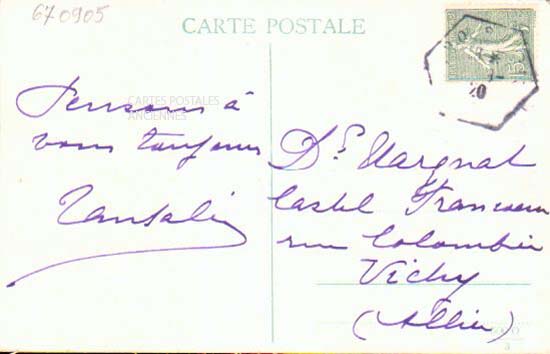 670905
CARTE POSTALE
15
20
CARTES POSTALES
ANCIENNES
Pensons à
vous toujours
Dr Margnat
Castel Francoeur
rue Colombier
Vichy
(Allier)